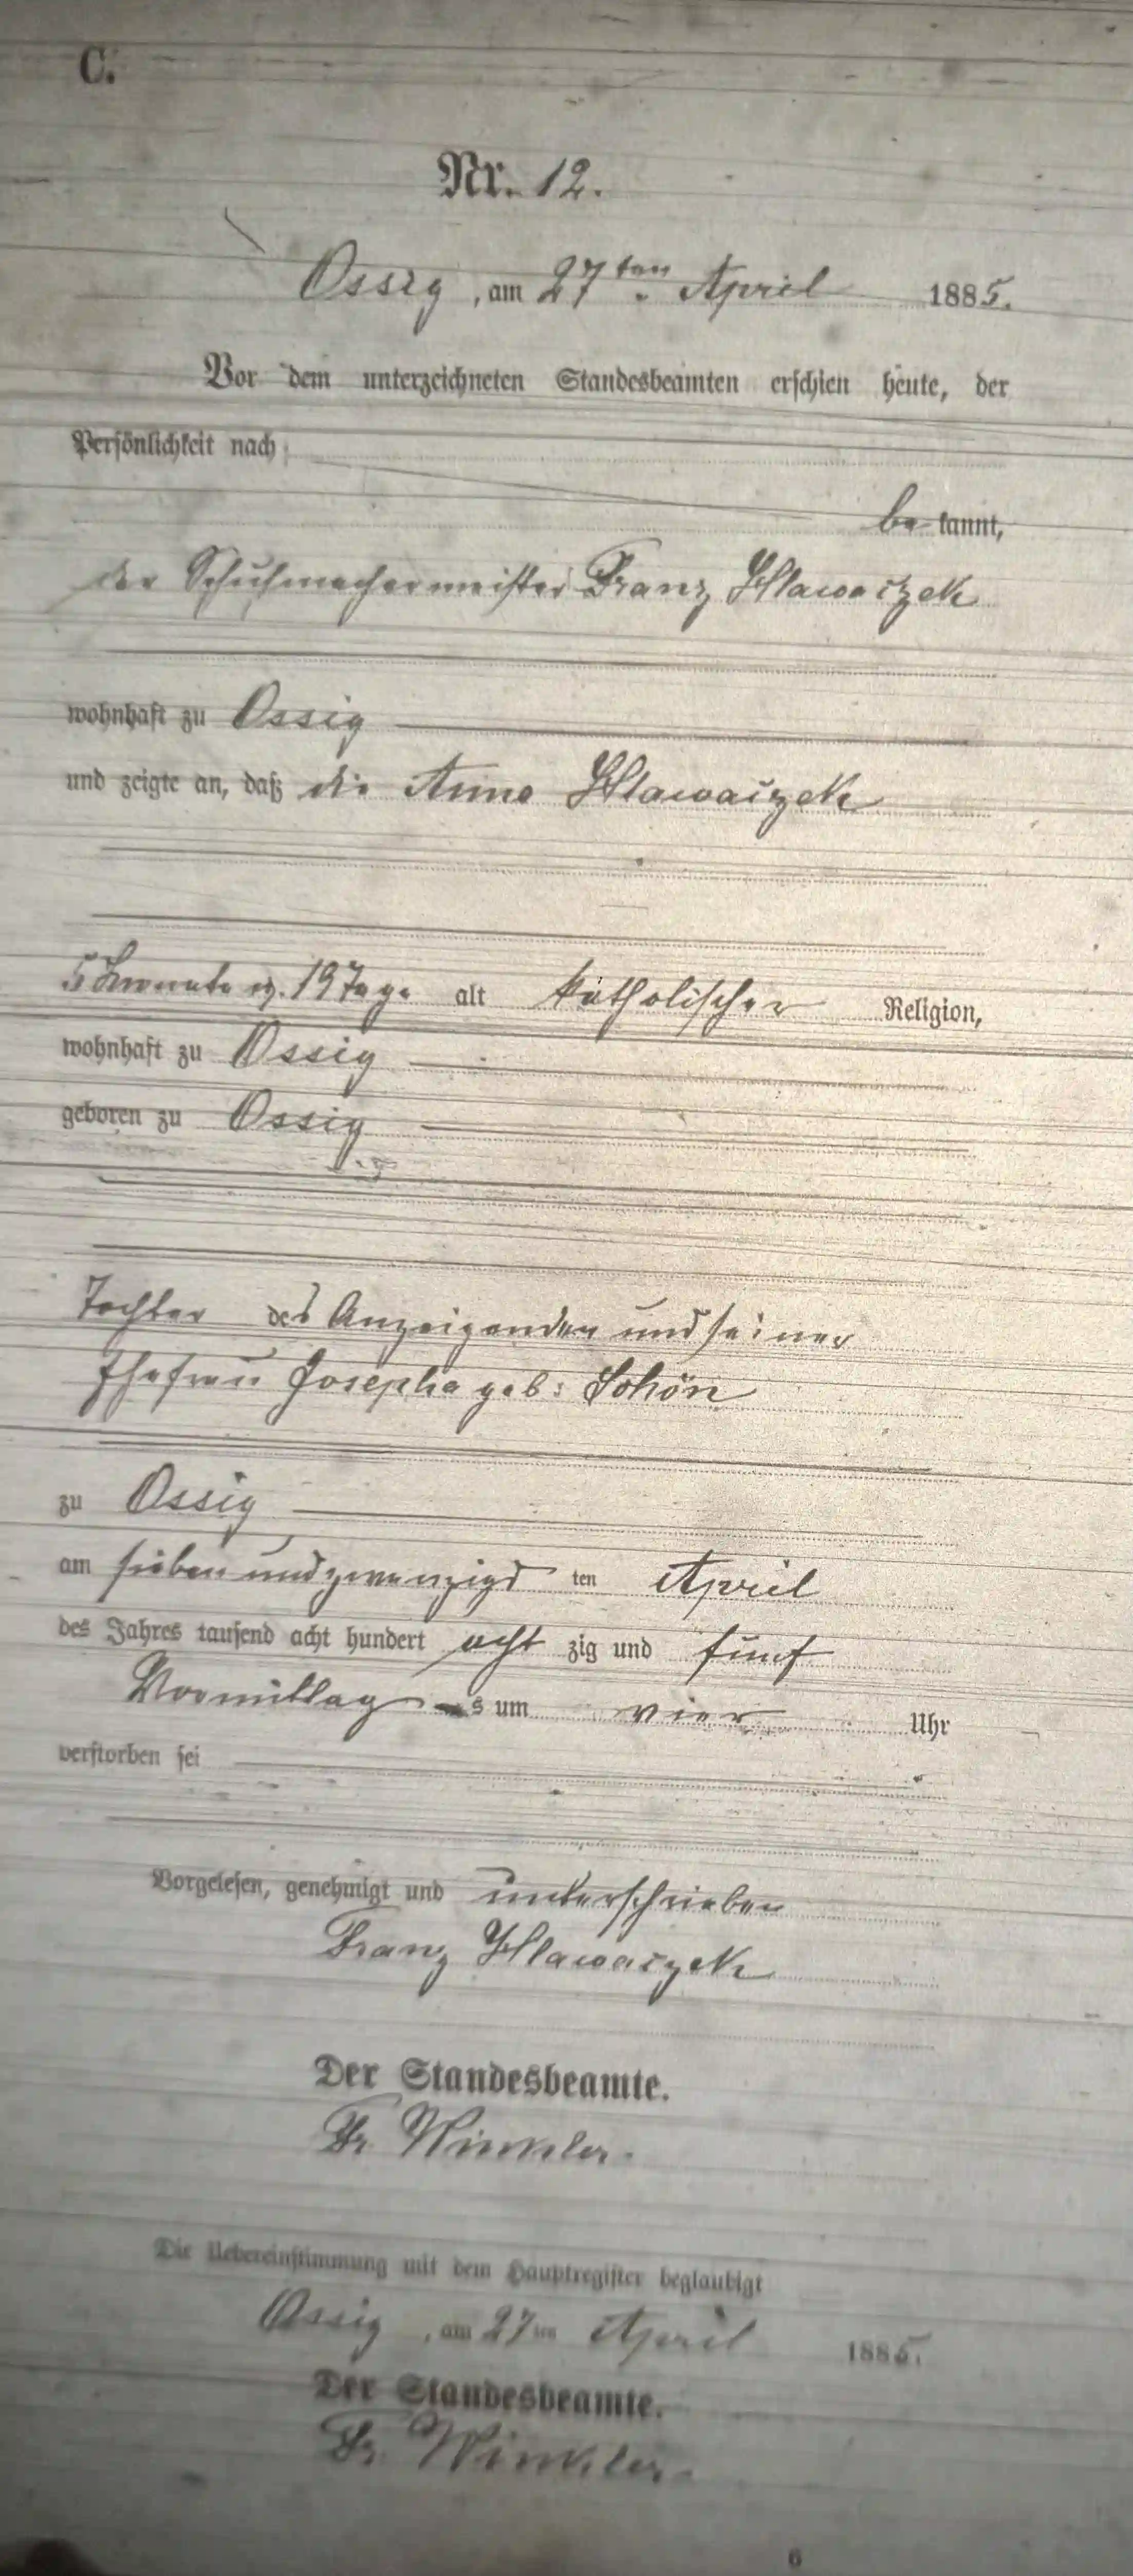 C.
Nr. 12.
Ossig, am 27ten April 1885.
Vor dem unterzeichneten Standesbeamten erschien heute, der
Persönlichkeit nach
be kannt,
der Schuhmachermeister Franz Hlawaczek
wohnhaft zu Ossig
und zeigte an, daß die Anna Hlawaczek
5 Monate u. 19 Tage alt katholischer Religion,
wohnhaft zu Ossig
geboren zu Ossig
Tochter des Anzeigenden und seiner
Ehefrau Josepha geb: Schön
zu Ossig
am sieben und zwanzigs ten April
des Jahres tausend acht hundert acht zig und fünf
Vormittag s um vier Uhr
verstorben sei
Vorgelesen, genehmigt und unterschrieben
Franz Hlawaczek
Der Standesbeamte.
Fr. Winkler.
Die Uebereinstimmung mit dem Hauptregister beglaubigt
Ossig, am 27ten April 1885.
Der Standesbeamte.
Fr. Winkler.
6